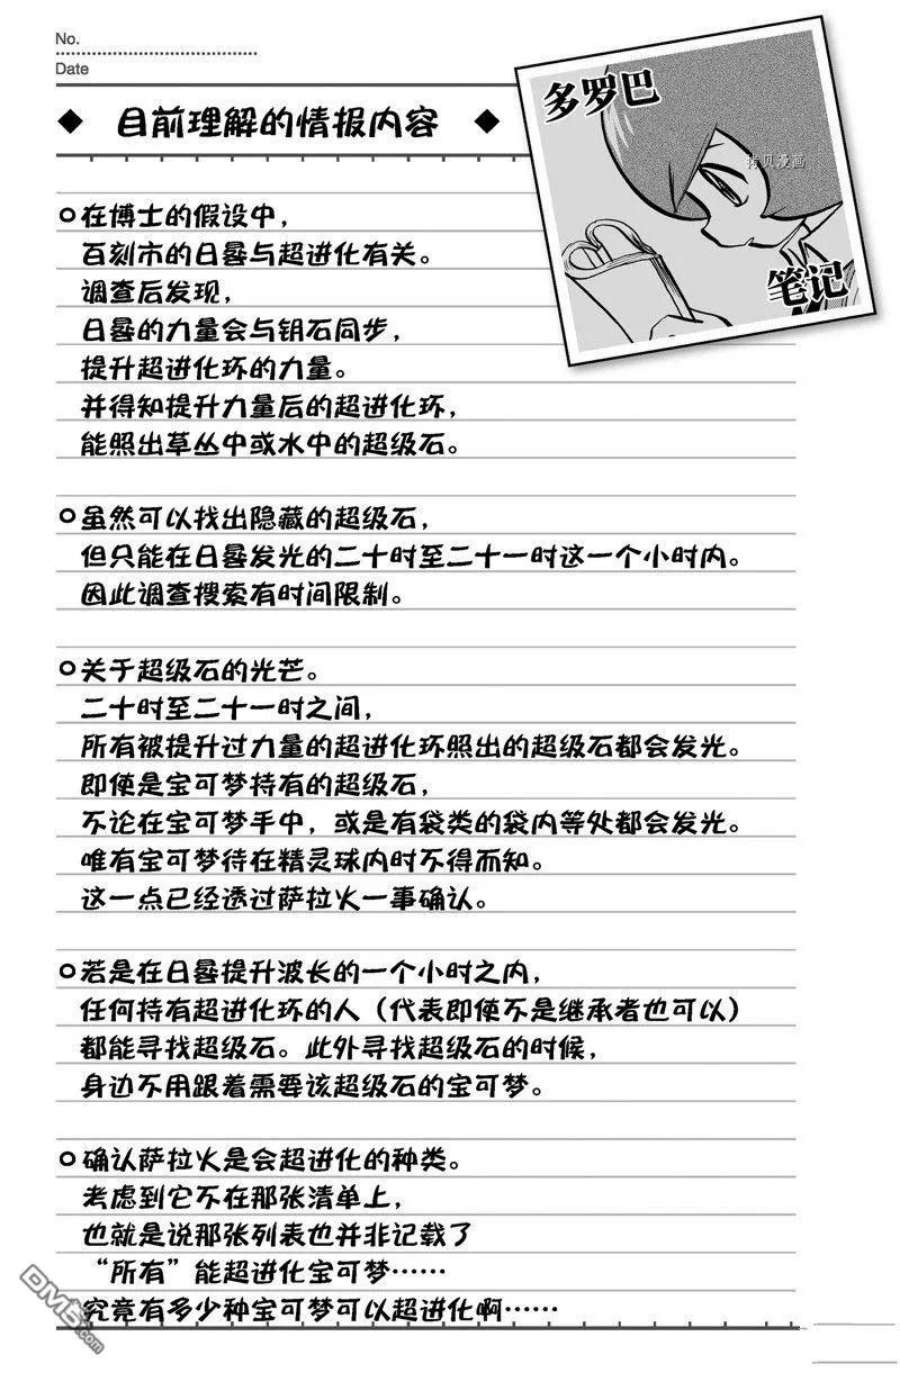 No.
Date
◆ 目前理解的情报内容 ◆
多罗巴
拷贝漫画
笔记
○在博士的假设中，
百刻市的日晷与超进化有关。
调查后发现，
日晷的力量会与钥石同步，
提升超进化环的力量。
并得知提升力量后的超进化环，
能照出草丛中或水中的超级石。
○虽然可以找出隐藏的超级石，
但只能在日晷发光的二十时至二十一时这一个小时内。
因此调查搜索有时间限制。
○关于超级石的光芒。
二十时至二十一时之间，
所有被提升过力量的超进化环照出的超级石都会发光。
即使是宝可梦持有的超级石，
不论在宝可梦手中，或是有袋类的袋内等处都会发光。
唯有宝可梦待在精灵球内时不得而知。
这一点已经透过萨拉火一事确认。
○若是在日晷提升波长的一个小时之内，
任何持有超进化环的人（代表即使不是继承者也可以）
都能寻找超级石。此外寻找超级石的时候，
身边不用跟着需要该超级石的宝可梦。
○确认萨拉火是会超进化的种类。
考虑到它不在那张清单上，
也就是说那张列表也并非记载了
“所有”能超进化宝可梦……
究竟有多少种宝可梦可以超进化啊……